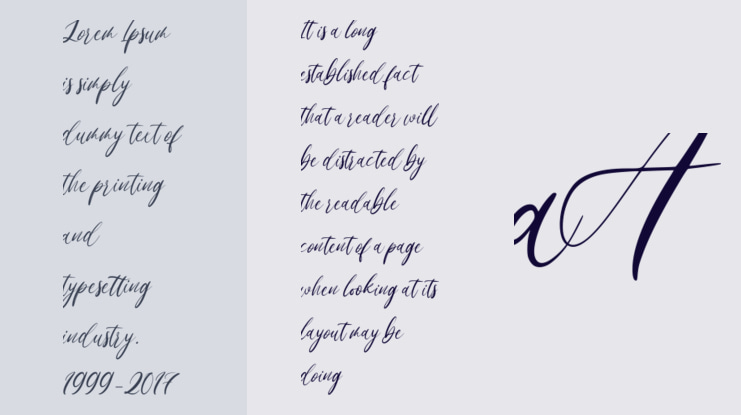 Lorem Ipsum
is simply
dummy text of
the printing
and
typesetting
industry.
1999-2017
It is a long
established fact
that a reader will
be distracted by
the readable
content of a page
when looking at its
layout may be
doing
a